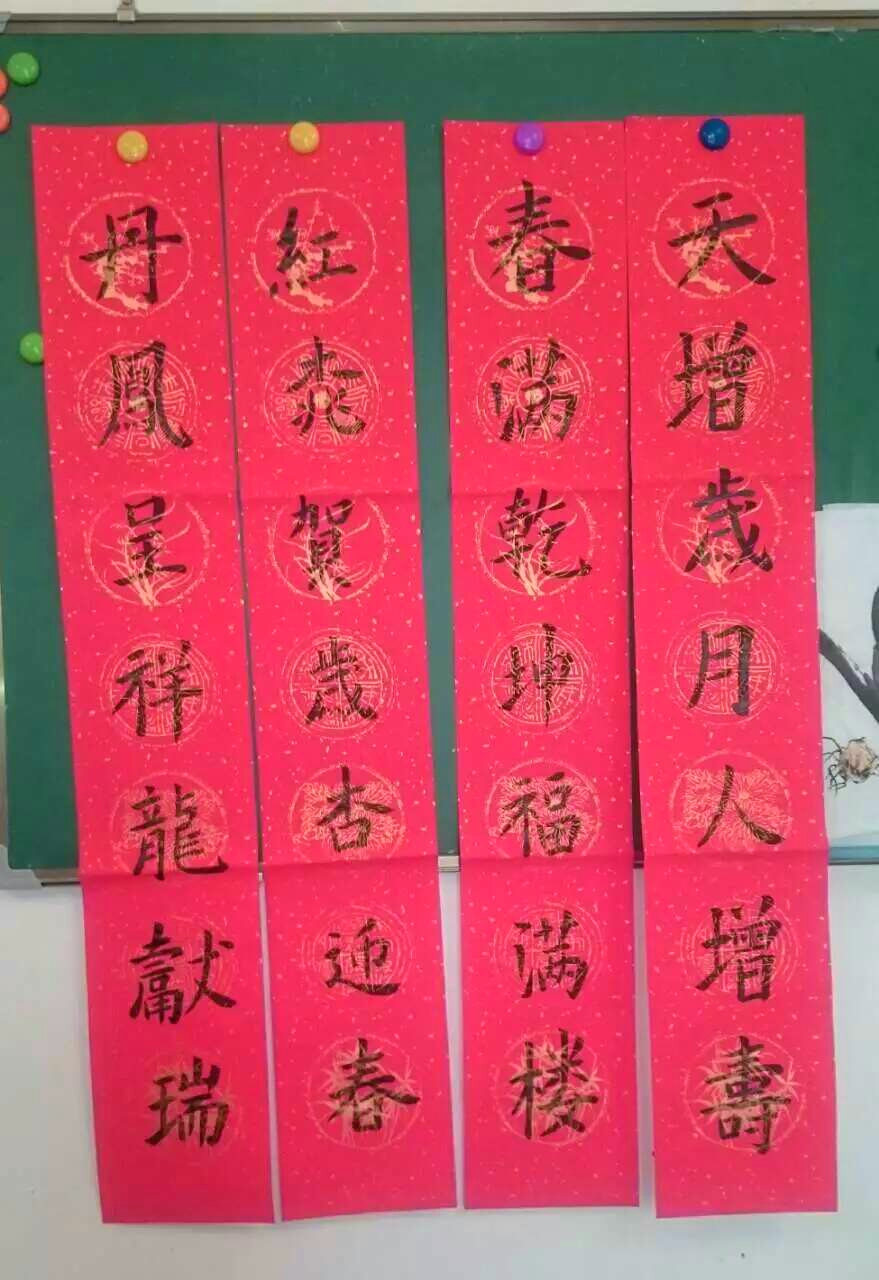 天增歲月人增壽
春满乾坤福满楼
紅桃賀歲杏迎春
丹鳳呈祥龍獻瑞